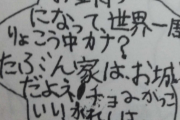 になって世界一周
りょこう中カナ?
たぶん家は、お城
だよえ チョーかっこ
いい